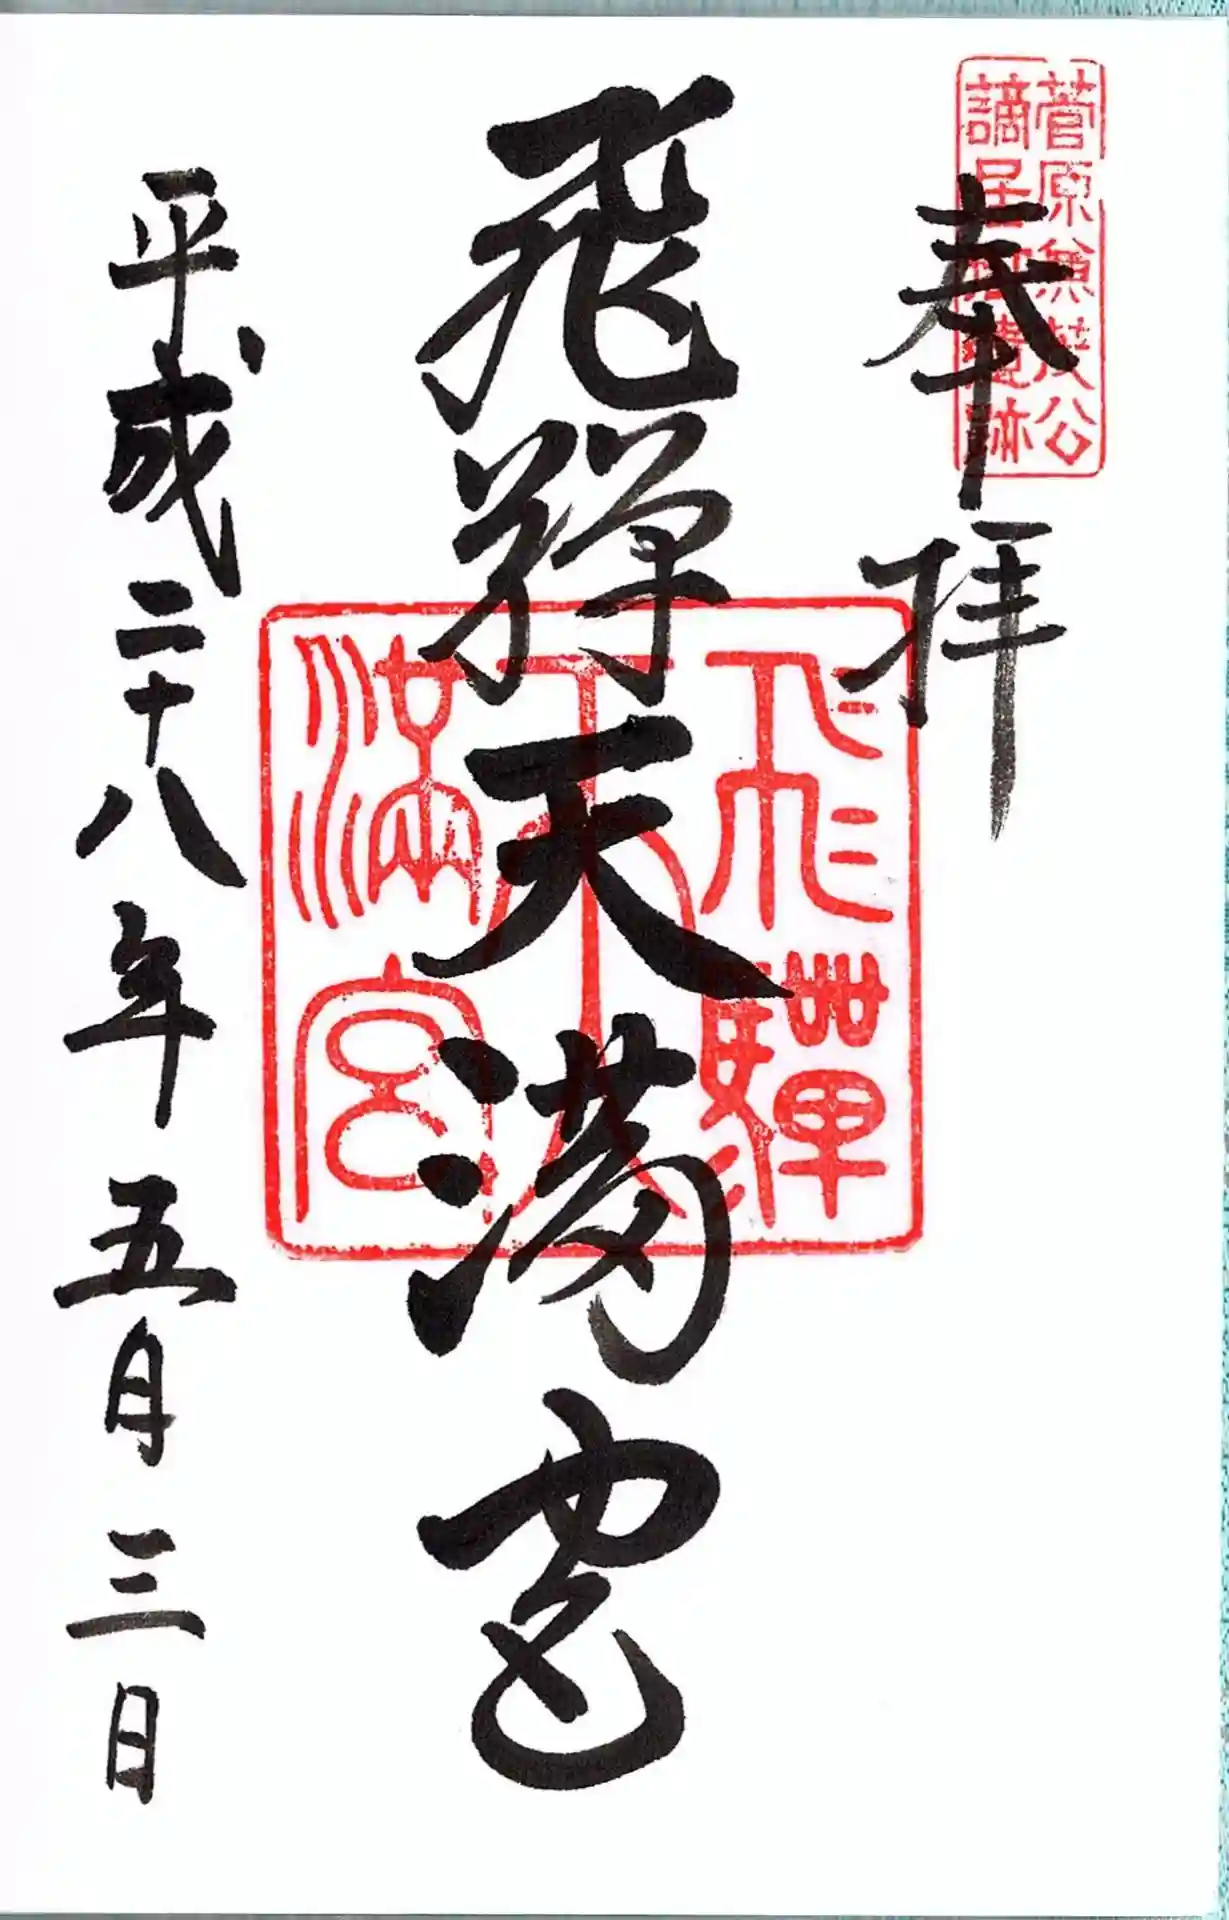 菅原兼茂公
謫居
跡
奉拝
飛騨天満宮
飛騨
天
満宮
平成二十八年五月三日